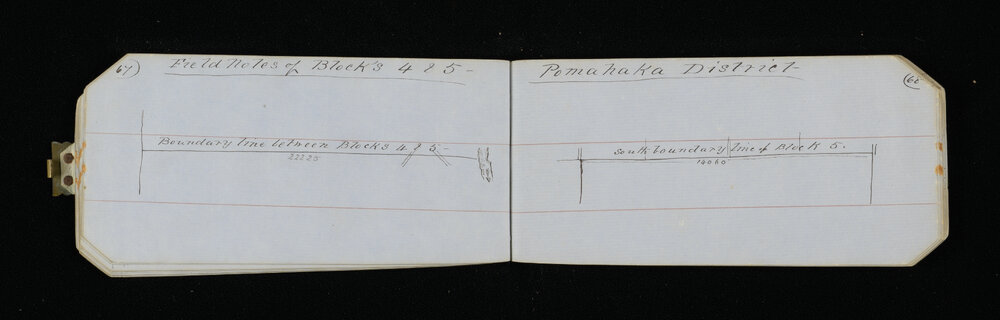 67
Field Notes of Blocks 4 & 5 -
Boundary line between Blocks 4 & 5 -
22225
Pomahaka District
South boundary line of Block 5.
14060